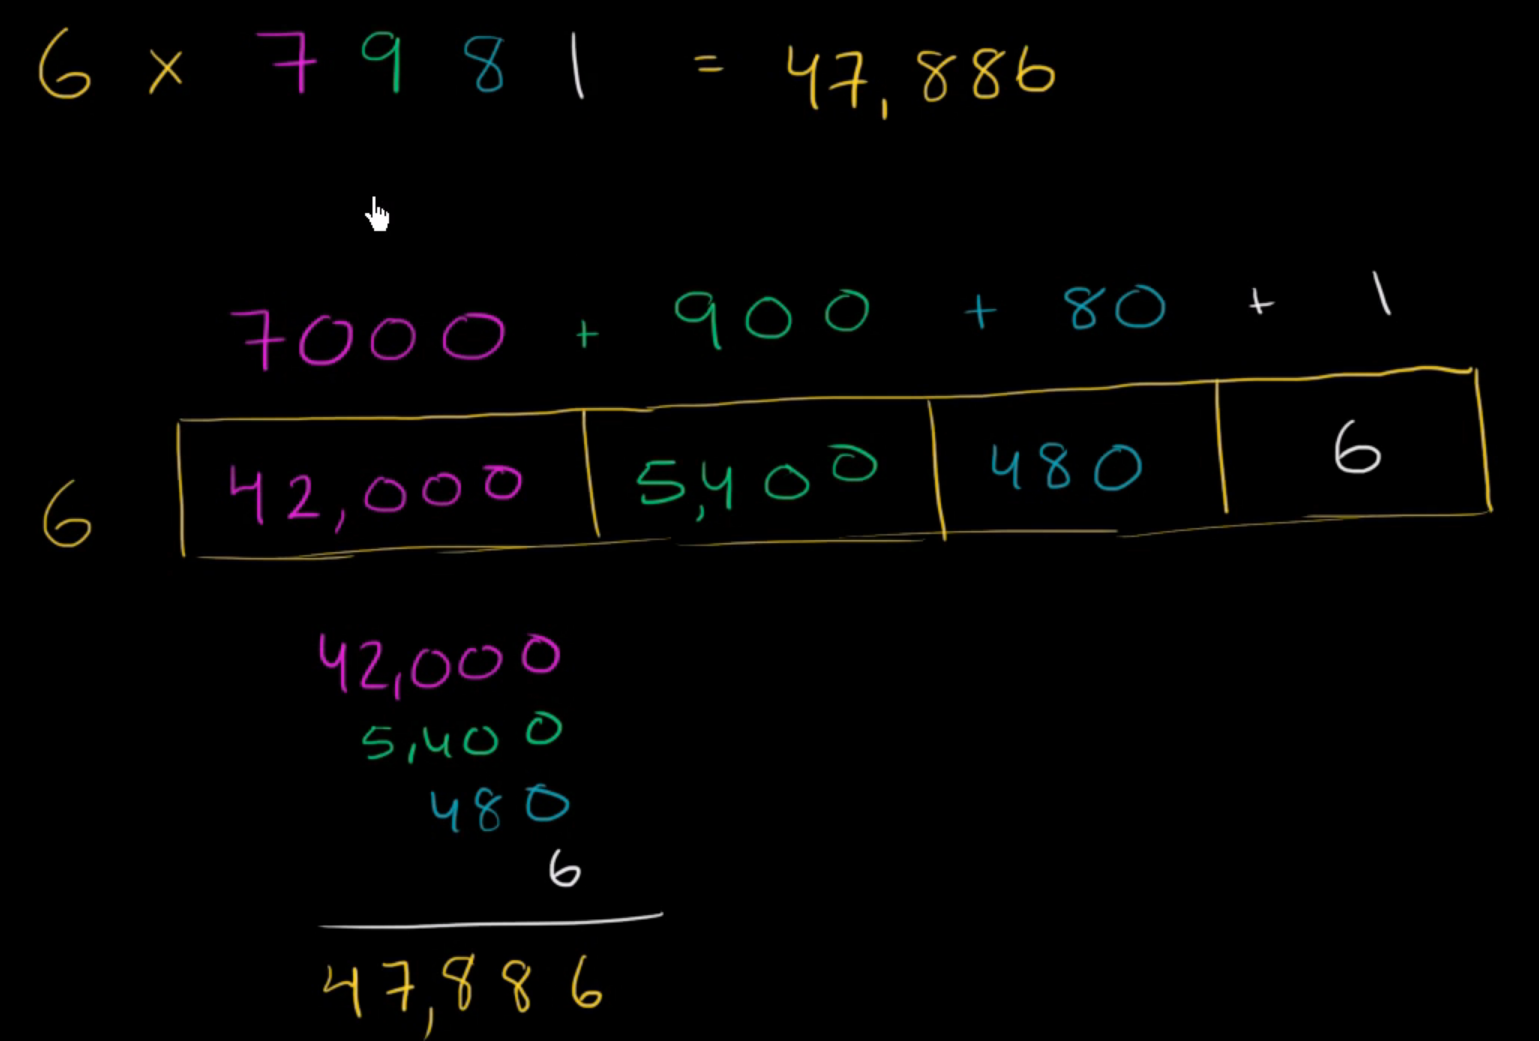 6 × 7981 = 47,886
7000 + 900 + 80 + 1
6 42,000 5,400 480 6
42,000
5,400
480
6
47,886